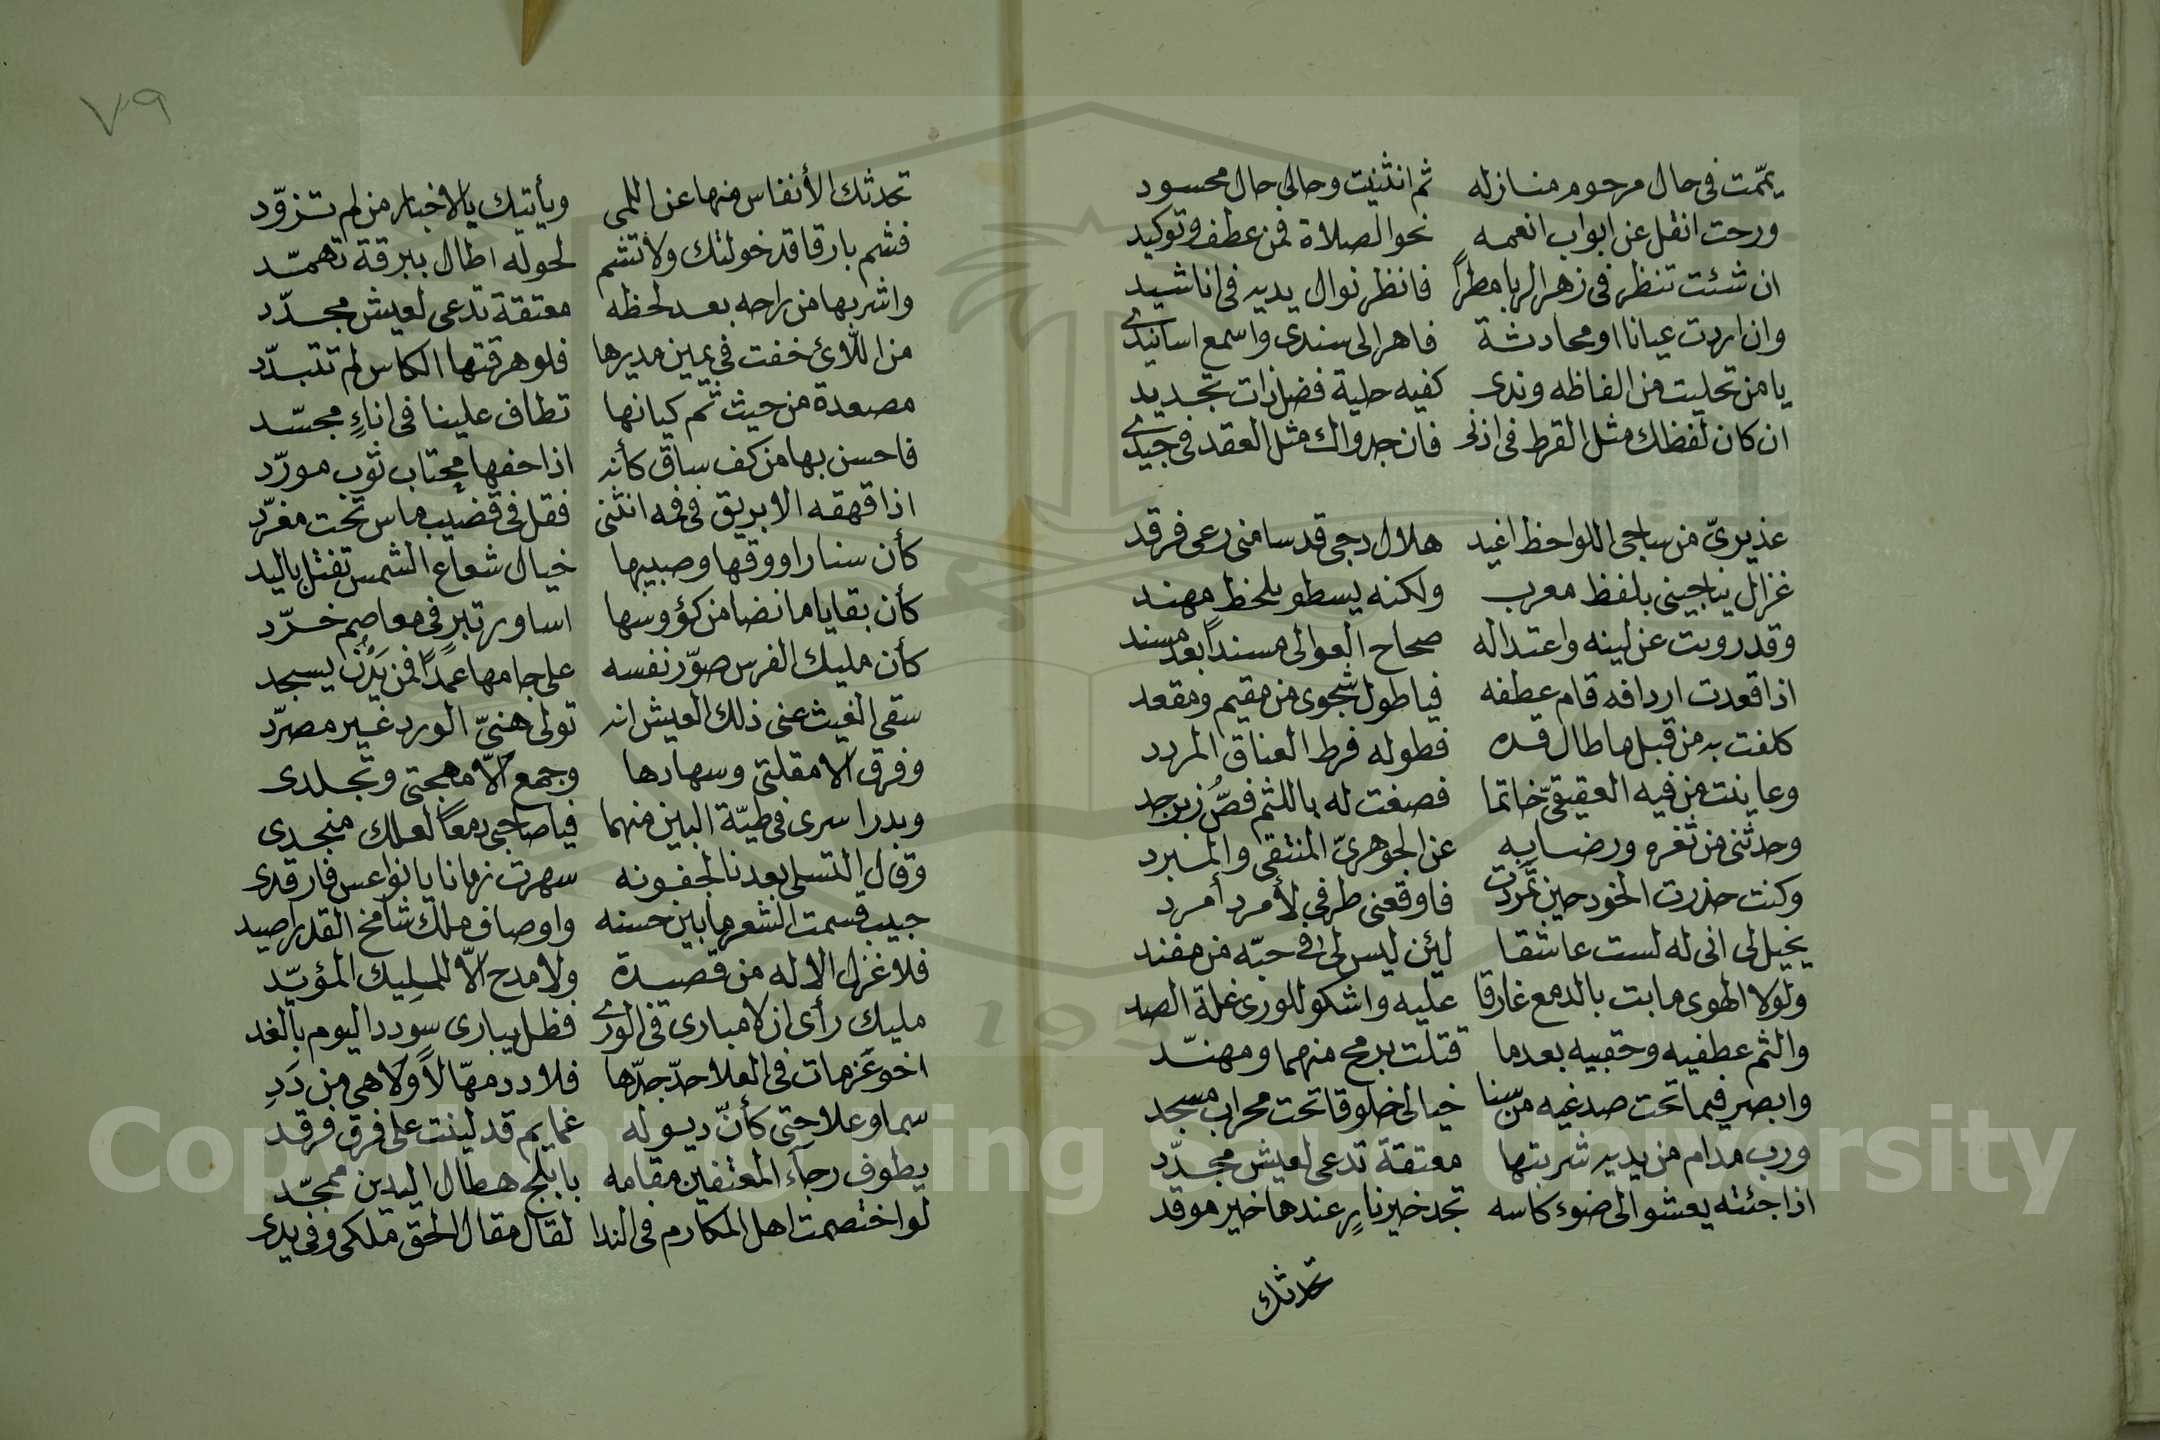 يمّمت في حال مرحوم منازله ثم انثنيت وحالي حال محسود
ورحت انقل عن ابواب انعمه نحو الصلاة فمن عطف وتوكيد
ان شئت تنظر في زهر الربا مطراً فانظر نوال يديه في اناشيد
وان اردت عيانا او محادثة فاهرا لي سندى واسمع اسانيدى
يا من تحليت من الفاظه وندى كفيه حلية فضل ذات تجديد
ان كان لفظك مثل القرط في اذنى فان جدواك مثل العقد في جيدى
عذيرىّ من ساجى اللواحظ اغيد هلال دجى قد سامنى رعى فرقد
غزال يناجينى بلفظ معرب ولكنه يسطو بلحظ مهند
وقد رويت عن لينه واعتداله صحاح العوالى مسنداً بعد مسند
اذا قعدت اردافه قام عطفه فيا طول شجوى من مقيم ومقعد
كلفت به من قبل ما طال قده فطوله فرط العناق المردد
وعاينت من فيه العقيقىّ خاتما فصغت له باللثم فصُّ زبرجد
وحدثنى من ثغره ورضابه عن الجوهرىّ المنتقى والمبرد
وكنت حذرت الخود حين تمّردت فاوقعنى طرفى لأمرد أمرد
يخيل لى انى له لست عاشقا ليئن ليس لى فى حبّه من مفند
ولولا الهوى ما بت بالدمع غارقا عليه واشكو للورى غلة الصد
والثم عطفيه وحقبيه بعدما قتلت برمح منهما ومهنّد
وابصر فيما تحت صدغيه من سنا خيالى خلوقا تحت محراب مسجد
ورب مدام من يديه شربتها معتقة تدعى لعيش مجدّد
اذا جئته يعشو الى ضوء كاسه تجد خير نارٍ عندها خير موقد
تحدثك
٧٩
تحدثك الأنفاس منها عن اللمى ويأتيك بالاخبار من لم تزوّد
فشم بارقا قد خولتك ولا تشم لخولة اطلال ببرقة ثهمّد
واشربها من راحه بعد لحظه معتقة تدعى لعيش مجدّد
من اللائ خفت فى يمين مديرها فلو هرقتها الكاس لم تتبدّد
مصعدة من حيث ثم كيانها تطاف علينا فى اناءٍ مجسّد
فاحسن بها من كف ساق كأنه اذا حفها مجتاب ثوب مورّد
اذا قهقه الابريق فى فه انثنى فقل فى قضيب ماس تحت مغرّد
كأن سنا راووقها وصبيبها خيال شعاع الشمس تفتل باليد
كأن بقايا ما نضا من كؤوسها اساور تبرٍ فى معاصم خرّد
كأن مليك الفرس صوّر نفسه على جامها عمداً فمن يدْنُ يسجد
سقى الغيث عنى ذلك العيش انه تولى هنىّ الورد غير مصرّد
وفرق الا مقلتى وسهادها وجمع الّا مهجتى وتجلدى
وبدرا سرى فى طيّة البين منهما فيا صاحبى دمعاً لعلك منجدى
وقال التسلى بعدنا لجفونه سهرت زمانا يا نواعس فارقدى
حبيب قسمت الشعر ما بين حسنه واوصاف ملك شامخ القدر اصيد
فلا غزل الا له من قصيدة ولا مدح الّا للمليك المؤيّد
مليك رأى ان لا مبارى فى الورى فظل يبارى سودد اليوم بالغد
اخو عزمات فى العلا حدّ جدّها فلا ددمهّا لاً ولا هى من دَدِ
سما وعلا حتى كأنّ ديوله غمايم قد لينت على فرق فرقد
يطوف رجاء المعتفين مقامه بابلج هطال اليدين ممجّد
لو اختصمت اهل المكارم فى الندا لقال مقال الحق ملكى وفى يدى